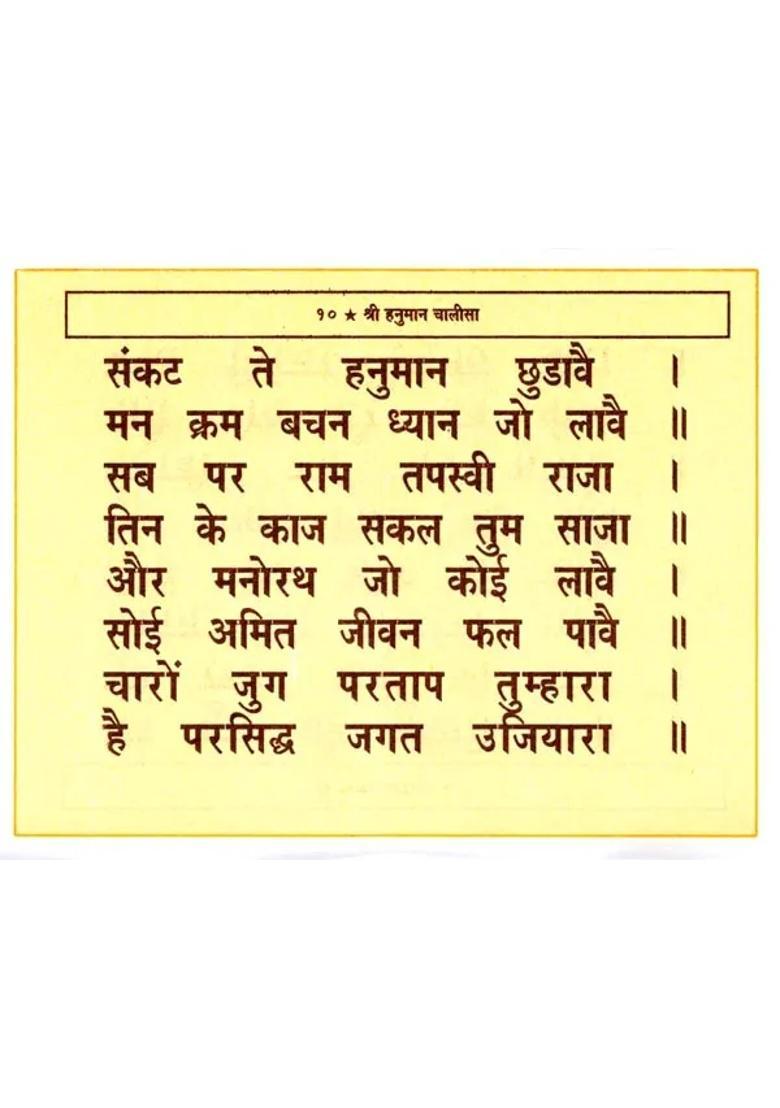 १० ★ श्री हनुमान चालीसा
संकट ते हनुमान छुडावै ।
मन क्रम बचन ध्यान जो लावै ॥
सब पर राम तपस्वी राजा ।
तिन के काज सकल तुम साजा ॥
और मनोरथ जो कोई लावै ।
सोई अमित जीवन फल पावै ॥
चारों जुग परताप तुम्हारा ।
है परसिद्ध जगत उजियारा ॥